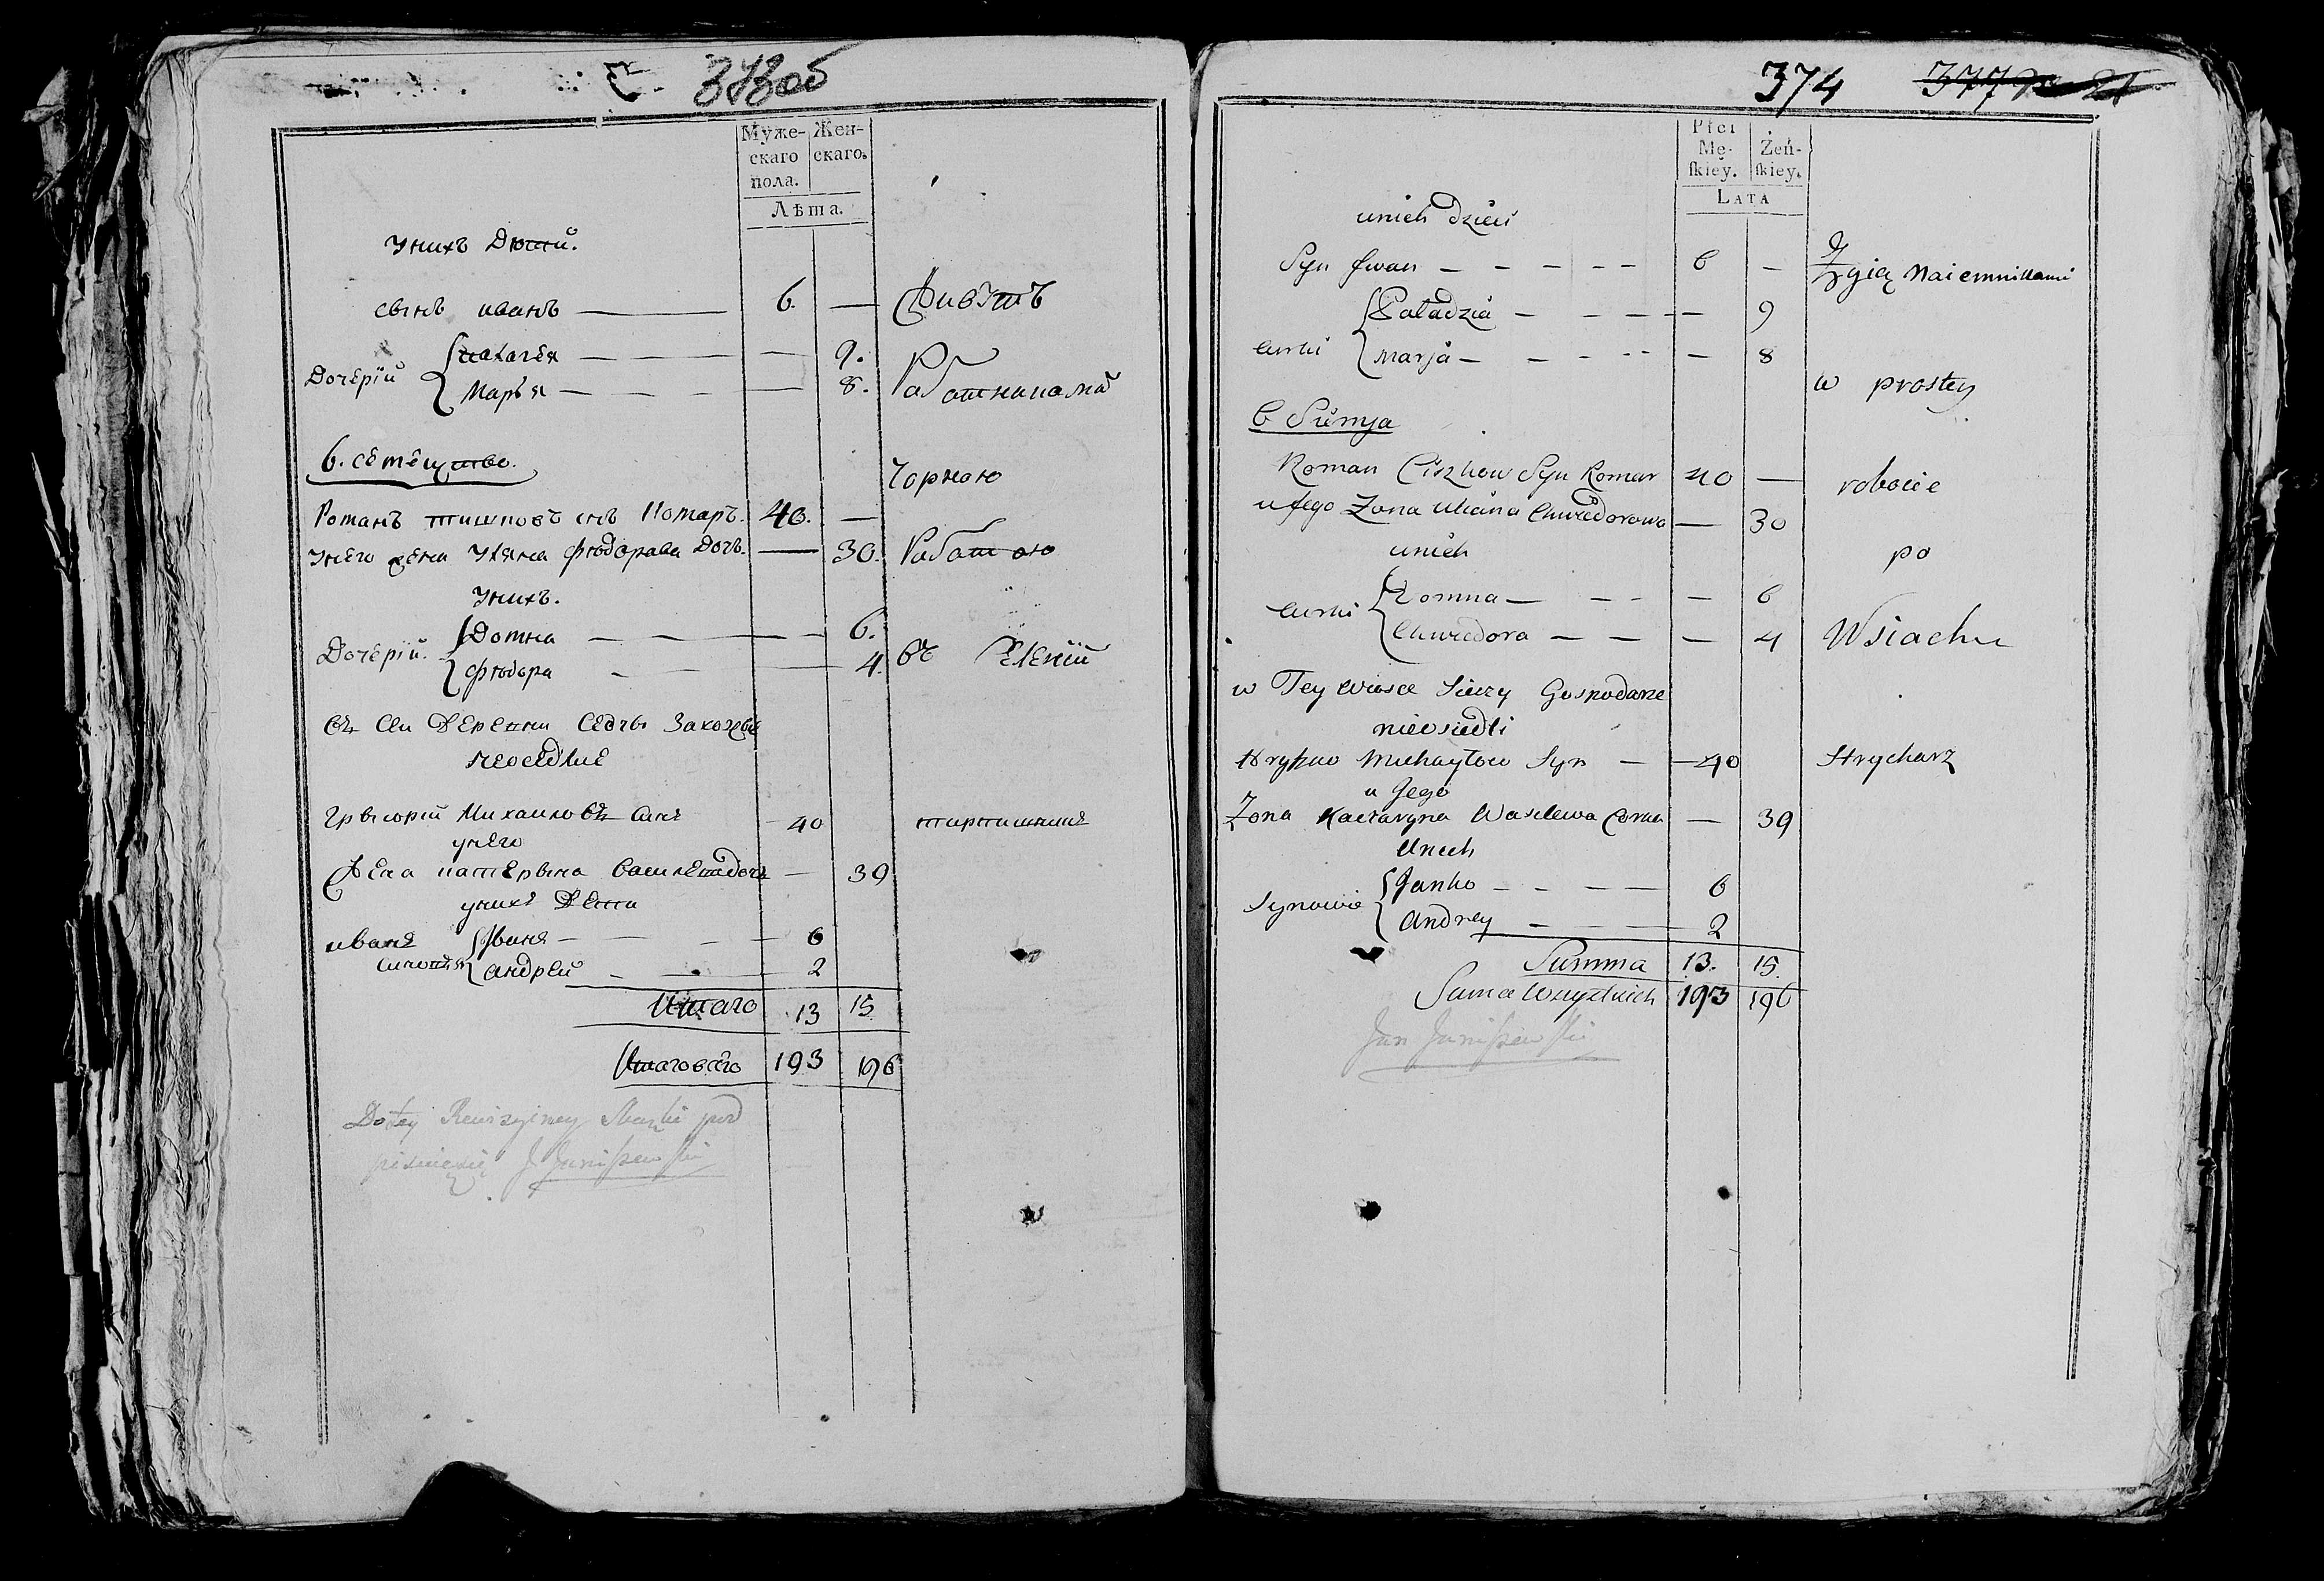 373об
Муже- Жен-
скаго скаго.
пола.
Лѣта.
унихъ Дѣтій.
сынъ иванъ — 6. — Живутъ
Дочерій Палагея — — 9.
Марья — — 8. Работникамы
6. семеиство. Чорною
Романъ тишковъ снъ Комаръ. 40. —
унего жена Уляна фѣодорава Дочъ. — 30. Работою
унихъ.
Дочерій. Домна — — 6.
фѣодора — — 4. въ Селеніи
Въ Сеи Деревни
неоседлые
Грыгорій Михаиловъ Сынъ 40
унего
Жена катерына Василева дочь — 39
унихъ Дети
иванъ Иванъ — 6
андреи — 2
Итаго 13 15
Итаго всего 193 196
Do tey Rewizyiney Skazki pod
pisuię się J Janiszewski
374 377
Płci
Mę- Żeń-
ſkiey. ſkiey.
LATA
unich dzieci
Syn Jwan — 6 — Żyią Naiemnikami
Curki Paładzia — — 9
Marja — — 8
w prostey
6 Siemja
Roman Ciszkow Syn Komar 40 — robocie
u Jego Zona Uliana Chwiedorowa — 30
unich po
Curki Domna — — 6
Chwiedora — — 4 Wsiachu
w Tey wiosce Siedzy Gospodarze
nieosiedli
Hryhuo Michayłow Syn — 40 Strycharz
u Jego
Zona Kactaryna Wasilewa Corka — 39
Unich
Synowie Janko — 6
Andrey — 2
Summa 13. 15.
Suma Wszystkich 193 196
Jan Janiszewski